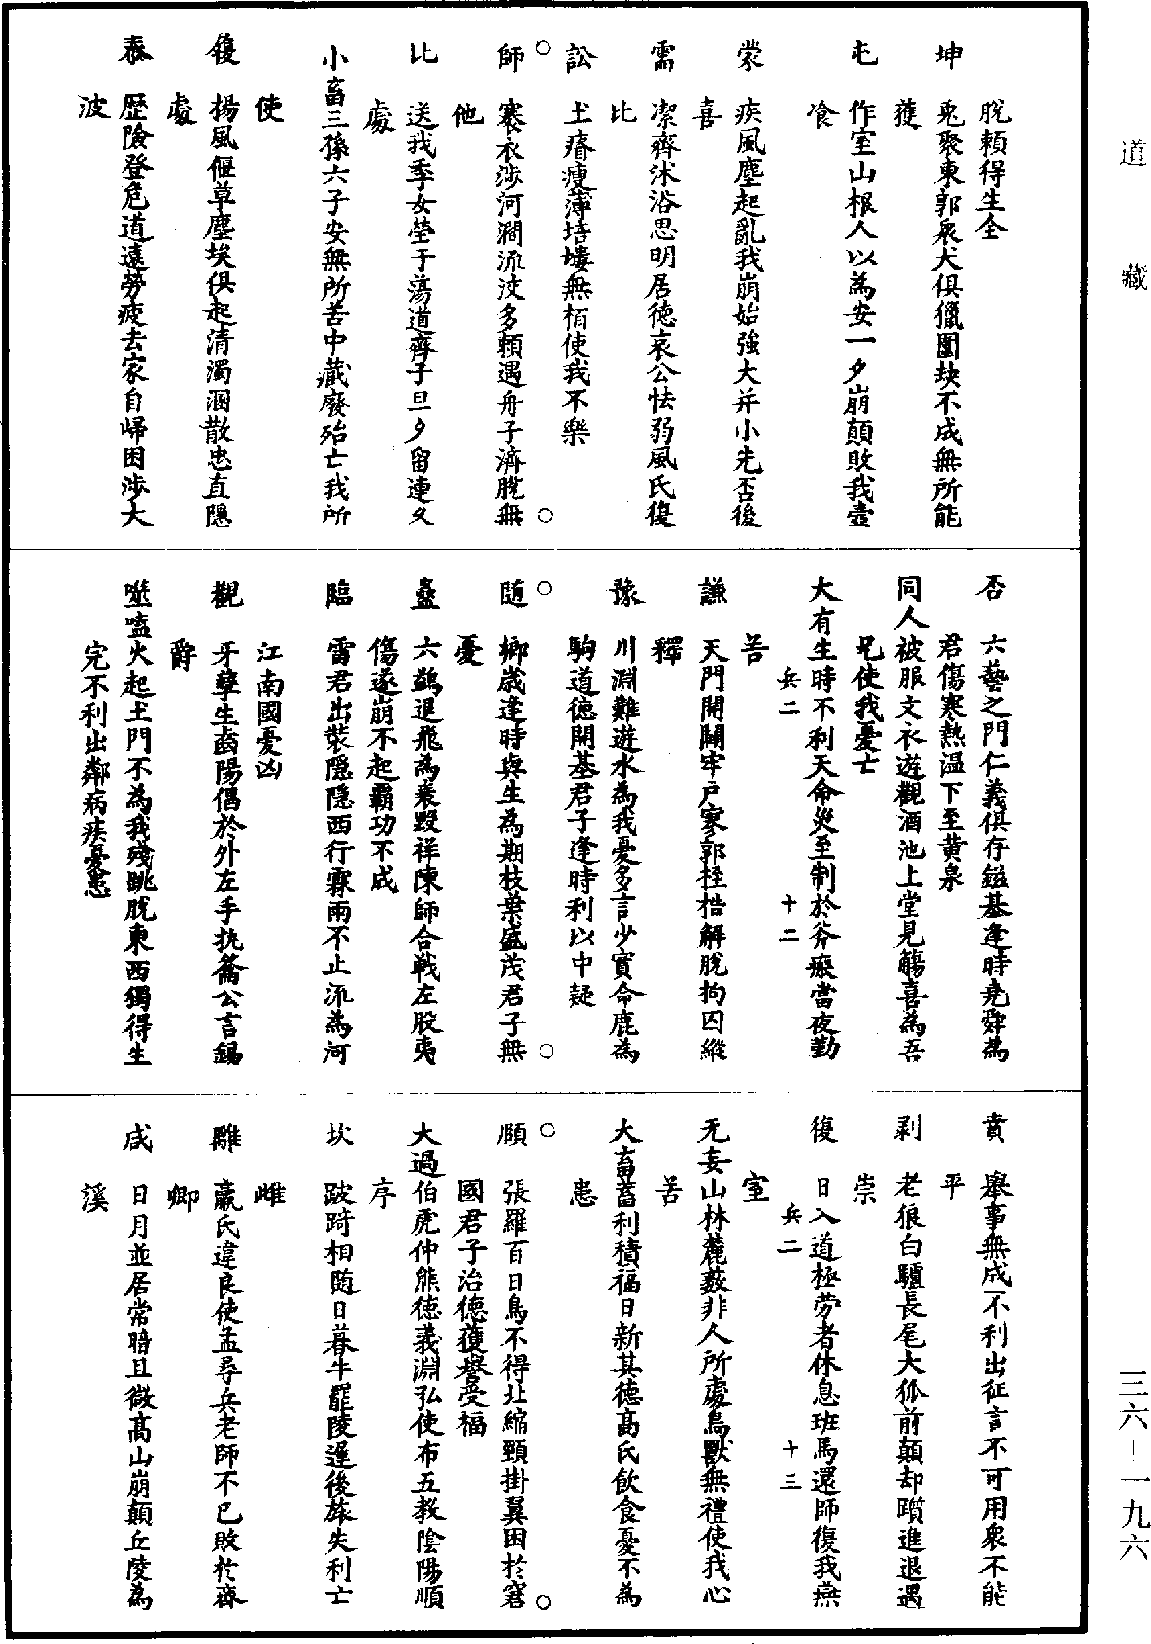 道藏
脫賴得生全
坤　兎聚東郭衆犬俱獵圍缺不成無所能
獲
屯　作室山根人以為安一夕崩顛敗我壺
飡
蒙　疾風塵起亂我崩始強大并小先否後
喜
需　潔齊沐浴思明居徳哀公怯弱風氏復
比
訟　土瘠瘦薄培塿無栢使我不樂
○師　褰衣涉河澗流波多賴遇舟子濟脫無○
他
比　送我季女至于蕩道齊子旦夕留連久
處
小畜三孫六子安無所苦中藏廢殆亡我所
使
履　揚風偃草塵埃俱起清濁溷散忠直隱
處
泰　歷險登危道遠勞疲去家自歸困涉大
波
否　六藝之門仁義俱存鎡基逢時堯舜為
君傷寒熱温下至黃泉
同人被服文衣遊觀酒池上堂見觴喜為吾
兄使我憂亡
大有生時不利天命災至制於斧瘢當夜勤
苦　兵二　十二
謙　天門開闢牢戶寥郭桎梏解脫拘囚縱
釋
豫　川淵難遊水為我憂多言少實命鹿為
駒道德開基君子逢時利以中疑
○隨　鄉歲逢時與生為期枝葉盛茂君子無○
憂
蠱　六鷁退飛為襄敗祥陳師合戰左股夷
傷遂崩不起霸功不成
臨　雷君出裝隱隱西行霖雨不止流為河
江南國憂凶
觀　牙孽生齒陽倡於外左手執籥公言錫
爵
噬嗑火起土門不為我殘眺脫東西獨得生
完不利出鄰病疾憂患
賁　舉事無成不利出征言不可用衆不能
平
剥　老狼白驢長尾大狐前顛却躓進退遇
祟
復　日入道極勞者休息班馬還師復我燕
室　兵二　十三
无妄山林麓藪非人所處鳥獸無禮使我心
苦
大畜蓄利積福日新其德高氏飲食憂不為
患
○頤　張羅百日鳥不得北縮頸掛翼困於窘○
國君子治德獲譽受福
大過伯虎仲熊德義淵弘使布五教陰陽順
序
坎　跛踦相隨日暮牛罷陵遲後旅失利亡
雌
離　嬴氏違良使孟尋兵老師不已敗於齊
卿
咸　日月並居常暗且微高山崩顛丘陵為
溪
三六－一九六